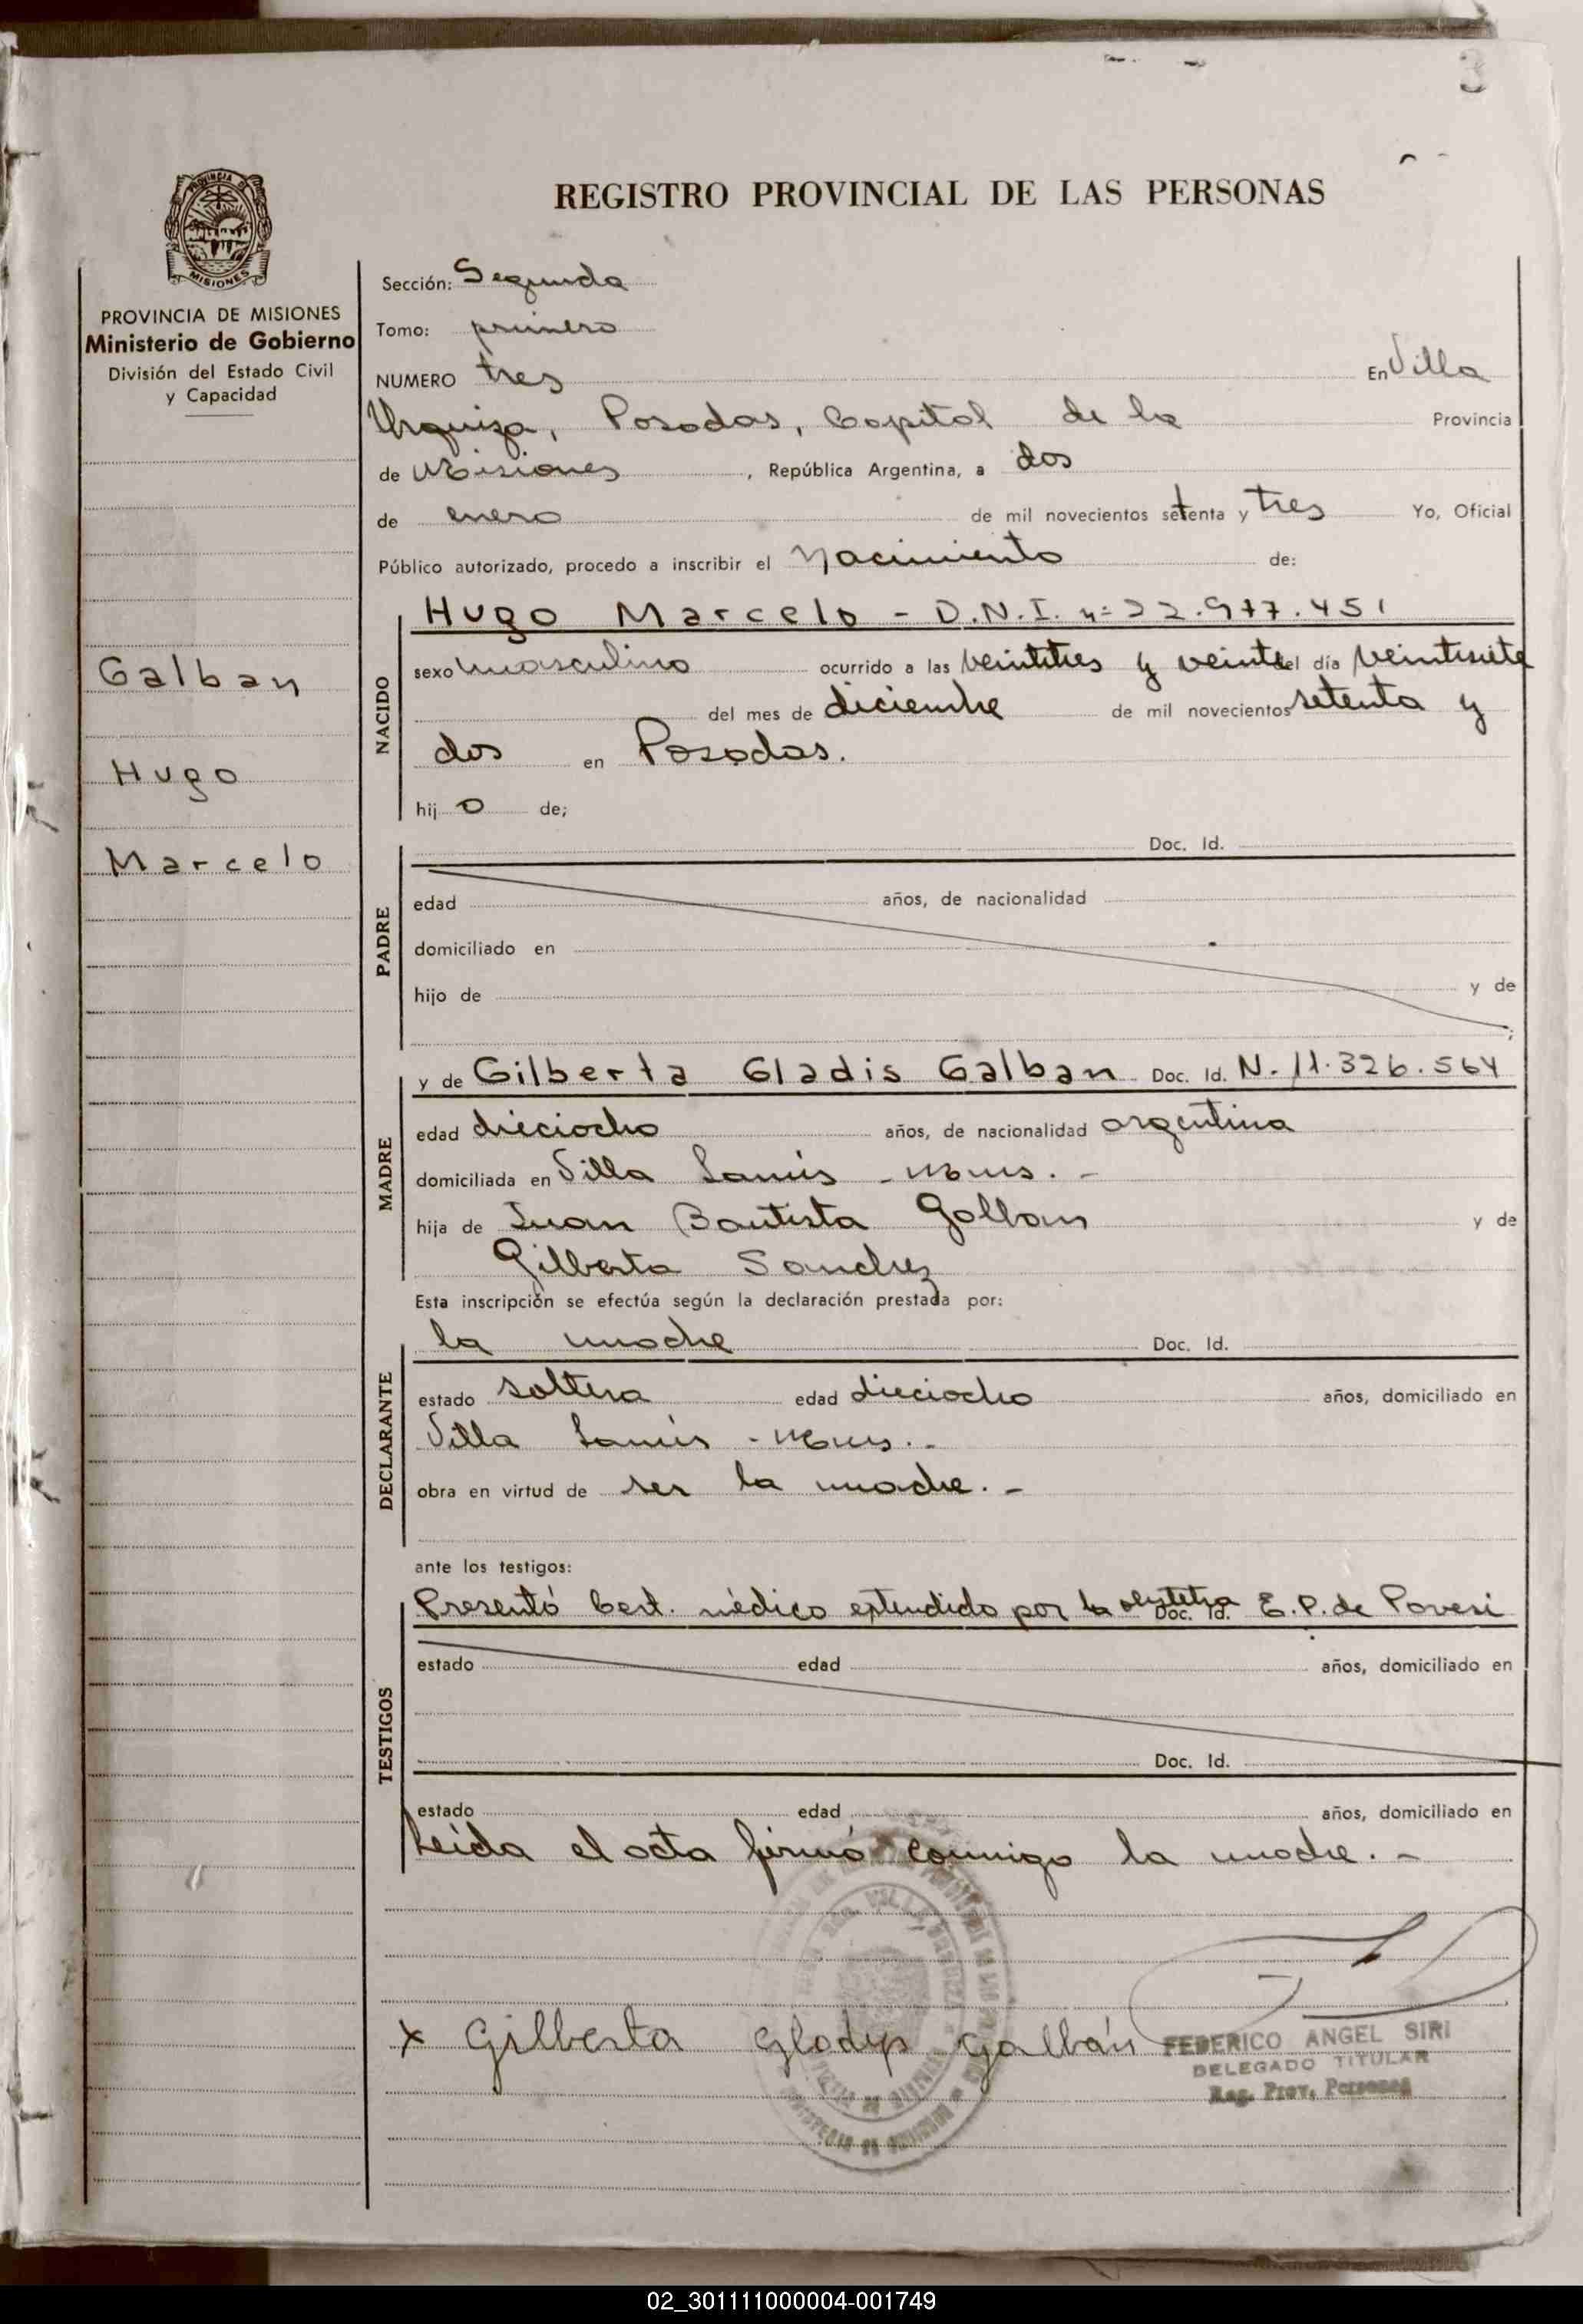 3
REGISTRO PROVINCIAL DE LAS PERSONAS
PROVINCIA DE MISIONES
Ministerio de Gobierno
División del Estado Civil
y Capacidad
Galban
Hugo
Marcelo
Sección: Segunda
Tomo: primero
NUMERO tres En Villa
Urquiza, Posadas, Capital de la Provincia
de Misiones, República Argentina, a dos
de enero de mil novecientos setenta y tres Yo, Oficial
Público autorizado, procedo a inscribir el Nacimiento de:
NACIDO
Hugo Marcelo - D.N.I. nº 22.977.451
sexo masculino ocurrido a las veintitres y veinte del día veintisiete
del mes de diciembre de mil novecientos setenta y
dos en Posadas.
hij o de;
PADRE
Doc. Id.
edad años, de nacionalidad
domiciliado en
hijo de y de
;
MADRE
y de Gilberta Gladis Galban Doc. Id. N. 11.326.564
edad dieciocho años, de nacionalidad argentina
domiciliada en Villa Lanús - Mnes. -
hija de Juan Bautista Galban y de
Gilberta Sanchez
Esta inscripción se efectúa según la declaración prestada por:
DECLARANTE
la madre Doc. Id.
estado soltera edad dieciocho años, domiciliado en
Villa Lanús - Mnes. -
obra en virtud de ser la madre. -
ante los testigos:
TESTIGOS
Presentó Cert. médico extendido por la obstetra Doc. Id. E. P. de Povesi
estado edad años, domiciliado en
Doc. Id.
estado edad años, domiciliado en
Leída el acta firmó conmigo la madre. -
x Gilberta Gladys Galbán
FEDERICO ANGEL SIRI
DELEGADO TITULAR
Reg. Prov. Personas
02_301111000004-001749